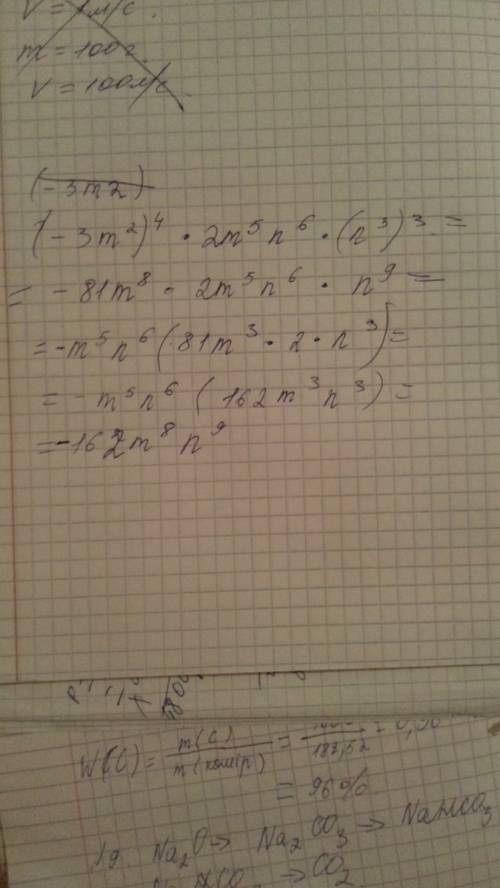 V = 1м/с.
m = 100г.
V = 100м/с
(-3m2)
(-3m²)⁴ · 2m⁵n⁶ · (n³)³ =
= -81m⁸ · 2m⁵n⁶ · n⁹ =
= -m⁵n⁶(81m³ · 2 · n³) =
= -m⁵n⁶(162m³n³) =
= -162m⁸n⁹
W(C) = m(C) / m(
183,52
= 96%
Na₂O → Na₂CO₃ → NaHCO₃
→ CO₂